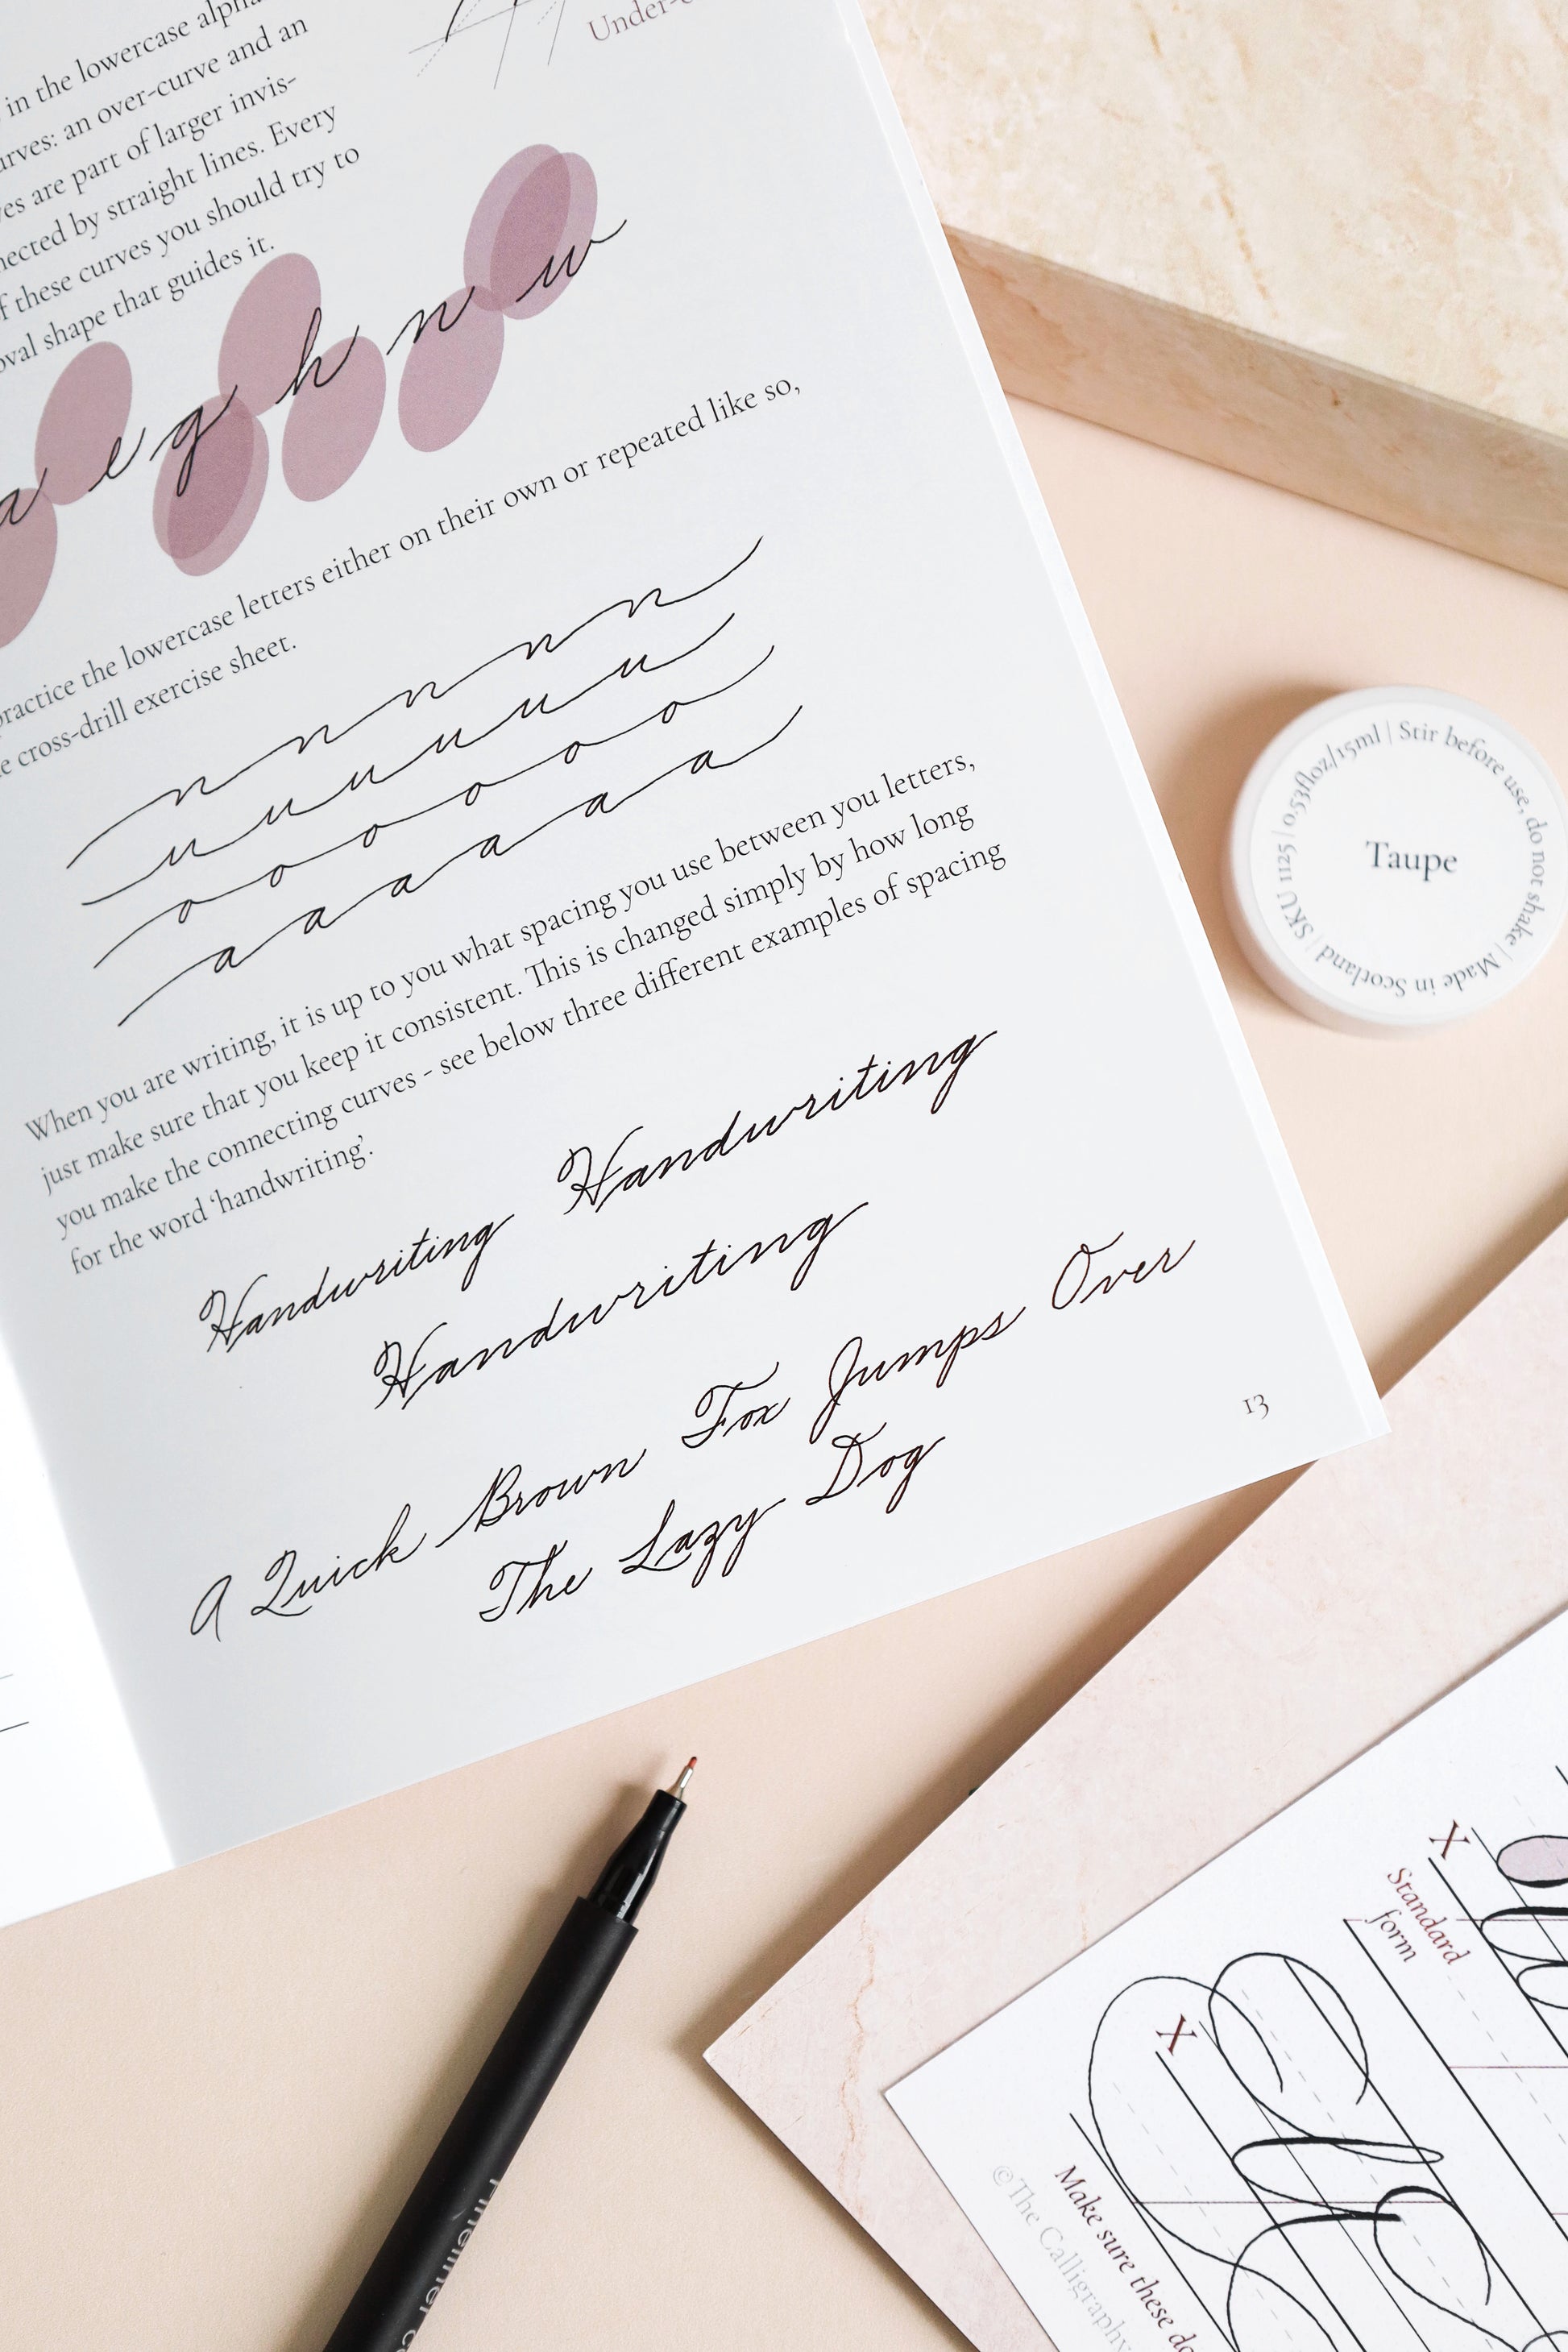 Under-
in the lowercase
curves: an over-curve and an
are part of larger invis-
by straight lines. Every
these curves you should try to
oval shape that guides it.
a e g h n u
practice the lowercase letters either on their own or repeated like so,
cross-drill exercise sheet.
n n n n n
u u u u u u
o o o o o o
a a a a a a
When you are writing, it is up to you what spacing you use between you letters,
just make sure that you keep it consistent. This is changed simply by how long
you make the connecting curves - see below three different examples of spacing
for the word 'handwriting'.
Handwriting Handwriting
Handwriting
A Quick Brown Fox Jumps Over
The Lazy Dog
13
Taupe
SKU 1125 | 0.53floz/15ml | Stir before use, do not shake | Made in Scotland |
Fineliner
X
Standard
form
X
Make sure these
©The Calligraphy